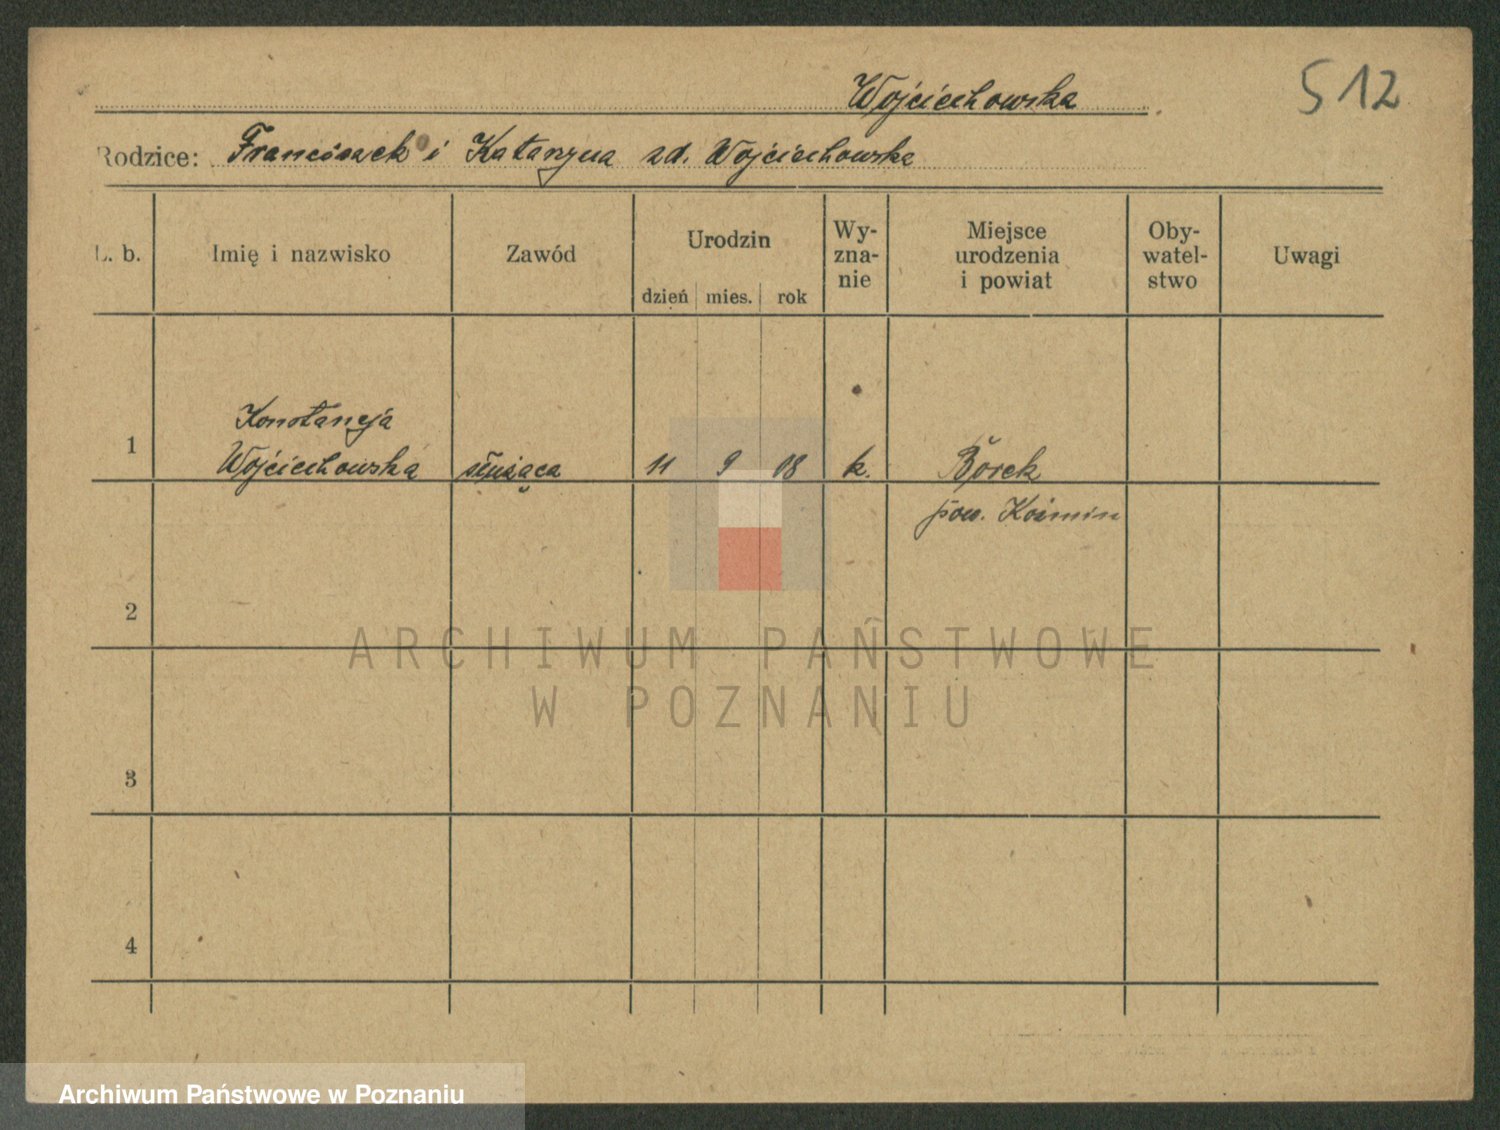 Wojciechowska
512
Rodzice: Franciszek i Katarzyna zd. Wojciechowska
L. b.
Imię i nazwisko
Zawód
Urodzin
dzień mies. rok
Wy-
zna-
nie
Miejsce
urodzenia
i powiat
Oby-
watel-
stwo
Uwagi
Konstancja
1 Wojciechowska służąca 11 9 08 k. Borek
pow. Koźmin
2
3
4
ARCHIWUM PAŃSTWOWE
W POZNANIU
Archiwum Państwowe w Poznaniu